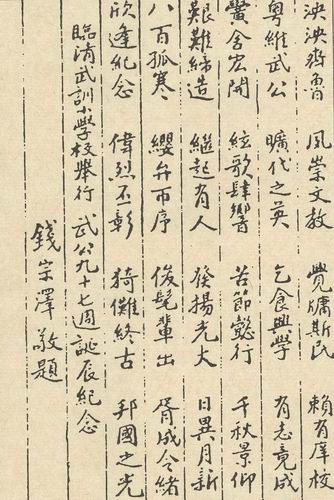 泱泱齊魯 風崇文教 覺牖斯民 賴有庠校
粵維武公 曠代之英 乞食興學 有志竟成
黌舍宏開 絃歌肆響 苦節懿行 千秋景仰
艱難締造 繼起有人 發揚光大 日異月新
八百孤寒 纓弁帀序 俊髦輩出 胥成令緒
欣逢紀念 偉烈丕彰 猗儺終古 邦國之光
臨清武訓小學校舉行 武公九十七週誕辰紀念
錢宗澤敬題